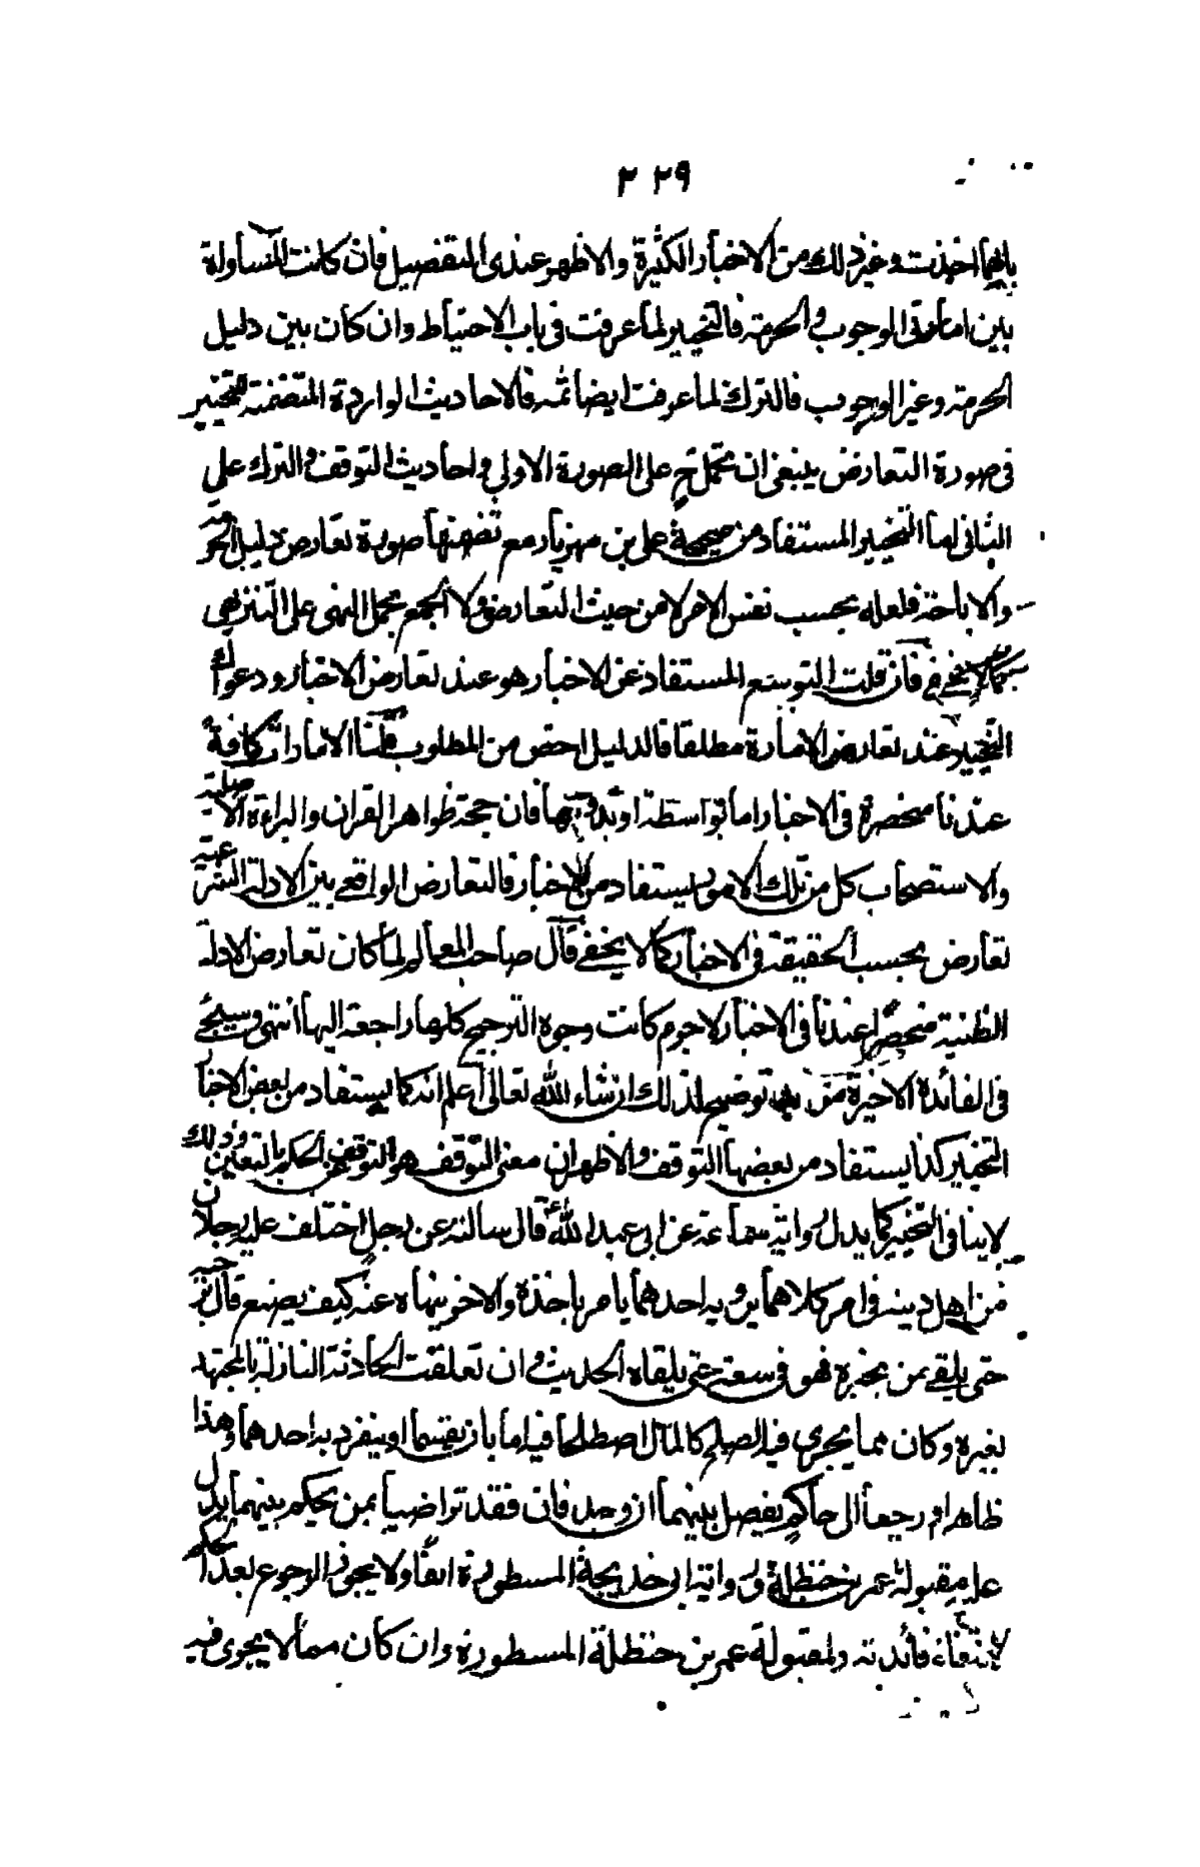 ٢٢٩
بايهما اخذت وغير ذلك من الاخبار الكثيرة والاظهر عندى التفصيل فان كانت المساواة
بين امارتى الوجوب والحرمة فالتخيير لما عرفت فى باب الاحتياط وان كان بين دليل
الحرمة وغير الوجوب فالترك لما عرفت ايضا ثمه فالاحاديث الواردة المتضمنة للتخيير
فى صورة التعارض ينبغى ان تحمل ح على الصورة الاولى واحاديث التوقف والترك على
الثانى اما التخيير المستفاد من صحيحة على بن مهزيار مع تضمنها صورة تعارض دليل الحرمة
والاباحة فلعله بحسب نفس الامر لا من حيث التعارض والجمع بحمل النهى على التنزيهى
كما لا يخفى فان قلت التوسع المستفاد عن الاخبار هو عند تعارض الاخبار ودعواك
التخيير عند تعارض الامارة مطلقا فالدليل اخص من المطلوب قلنا الامارات كافة
عندنا منحصرة فى الاخبار اما بواسطة او بدونها فان حجة ظواهر القران والبراءة الاصلية
والاستصحاب كل من تلك الامور يستفاد من الاخبار فالتعارض الواقع بين الادلة الشرعية
تعارض بحسب الحقيقة فى الاخبار كما لا يخفى قال صاحب المعالم لما كان تعارض الادلة
الظنية منحصرا عندنا فى الاخبار لاجرم كانت وجوه الترجيح كلها راجعة اليها انتهى وسيجئ
فى الفائدة الاخيرة توضيح لذلك ان شاء الله تعالى اعلم انه كما يستفاد من بعض الاخبار
التخيير كذا يستفاد من بعضها التوقف والاظهر ان معنى التوقف هو التوقف عن الحكم بالتعيين وذلك
لا ينافى التخيير كما يدل رواية سماعة عن ابى عبد الله ع قال سالته عن رجل اختلف عليه رجلان
من اهل دينه فى امر كلاهما يرويه احدهما يامر باخذه والاخر ينهاه عنه كيف يصنع قال يرجيه
حتى يلقى من يخبره فهو فى سعة حتى يلقاه الحديث وان تعلقت الحادثة النازلة بالمجتهد
بغيره وكان مما يجرى فيه الصلح كالمال اصطلحا فيه اما بان يقتسما او ينفرد به احدهما وهذا
ظاهر او رجعا الى حاكم يفصل بينهما ان وجد فان فقد تراضيا بمن يحكم بينهما يدل
عليه مقبولة عمر بن حنظلة ورواية ابى خديجة المسطورة انفا ولا يجوز الرجوع بعد الحكم
لانتفاء فائدته ولمقبولة عمر بن حنظلة المسطورة وان كان مما لا يجرى فيه